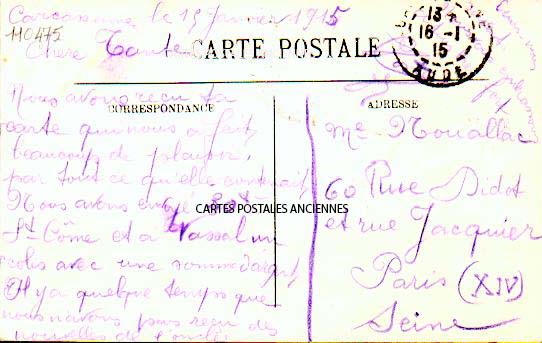 Carcassonne le 15 Janvier 1915
110475
Chère Tante
CARTE POSTALE
13
16-1
15
AUDE
CORRESPONDANCE
ADRESSE
Nous avons reçu ta
carte qui nous a fait
beaucoup de plaisir,
par tout ce qu'elle contenait
Nous avons envoyé
St-Côme et a Vassal un
colis avec une somme d'argent
Il y a quelque temps que
nous n'avons pas reçu des
nouvelles de l'oncle
CARTES POSTALES ANCIENNES
Me Nouallac
60 Rue Didot
et rue Jacquier
Paris (XIV)
Seine